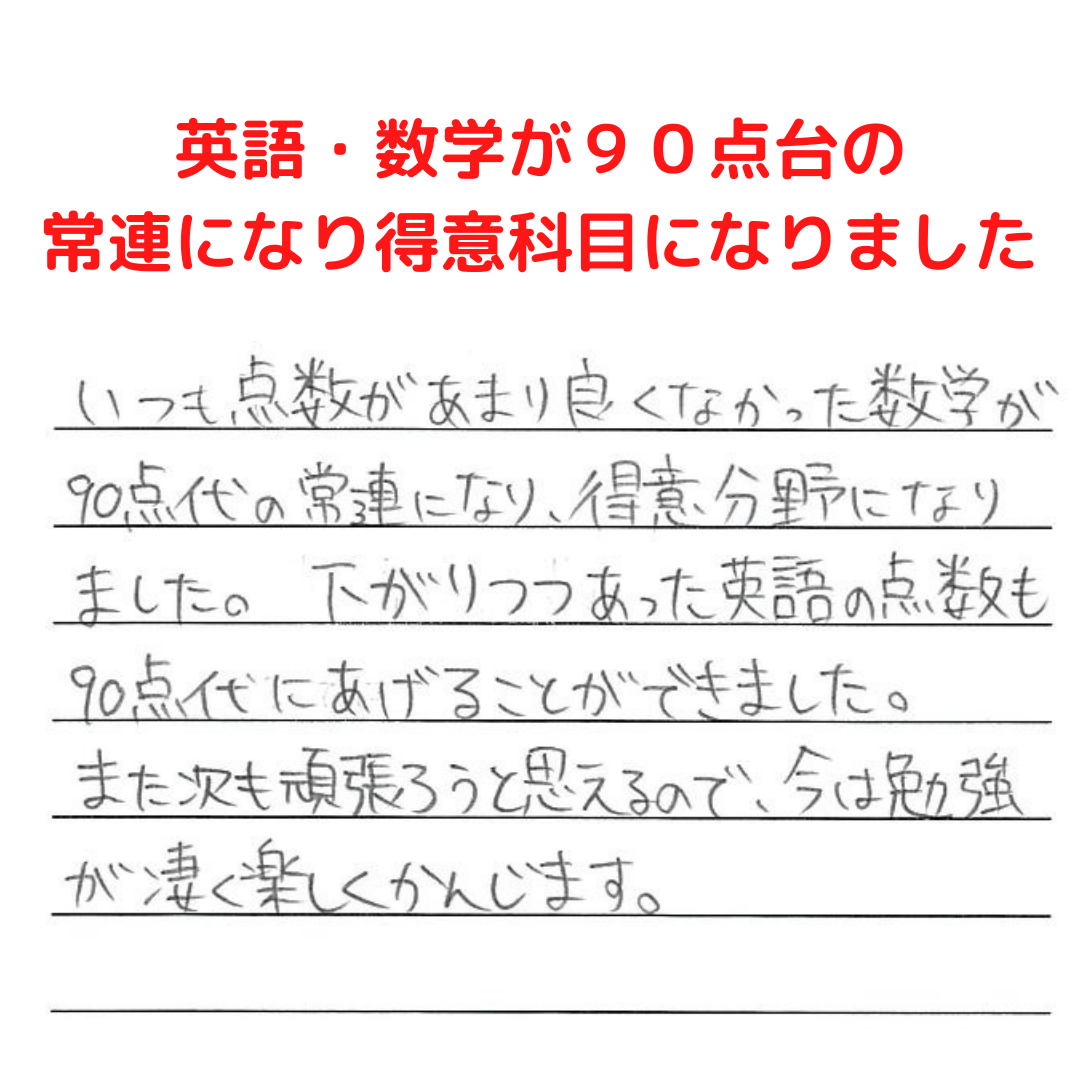 英語・数学が９０点台の
常連になり得意科目になりました
いつも点数があまり良くなかった数学が
90点代の常連になり、得意分野になり
ました。 下がりつつあった英語の点数も
90点代にあげることができました。
また次も頑張ろうと思えるので、今は勉強
が凄く楽しくかんじます。